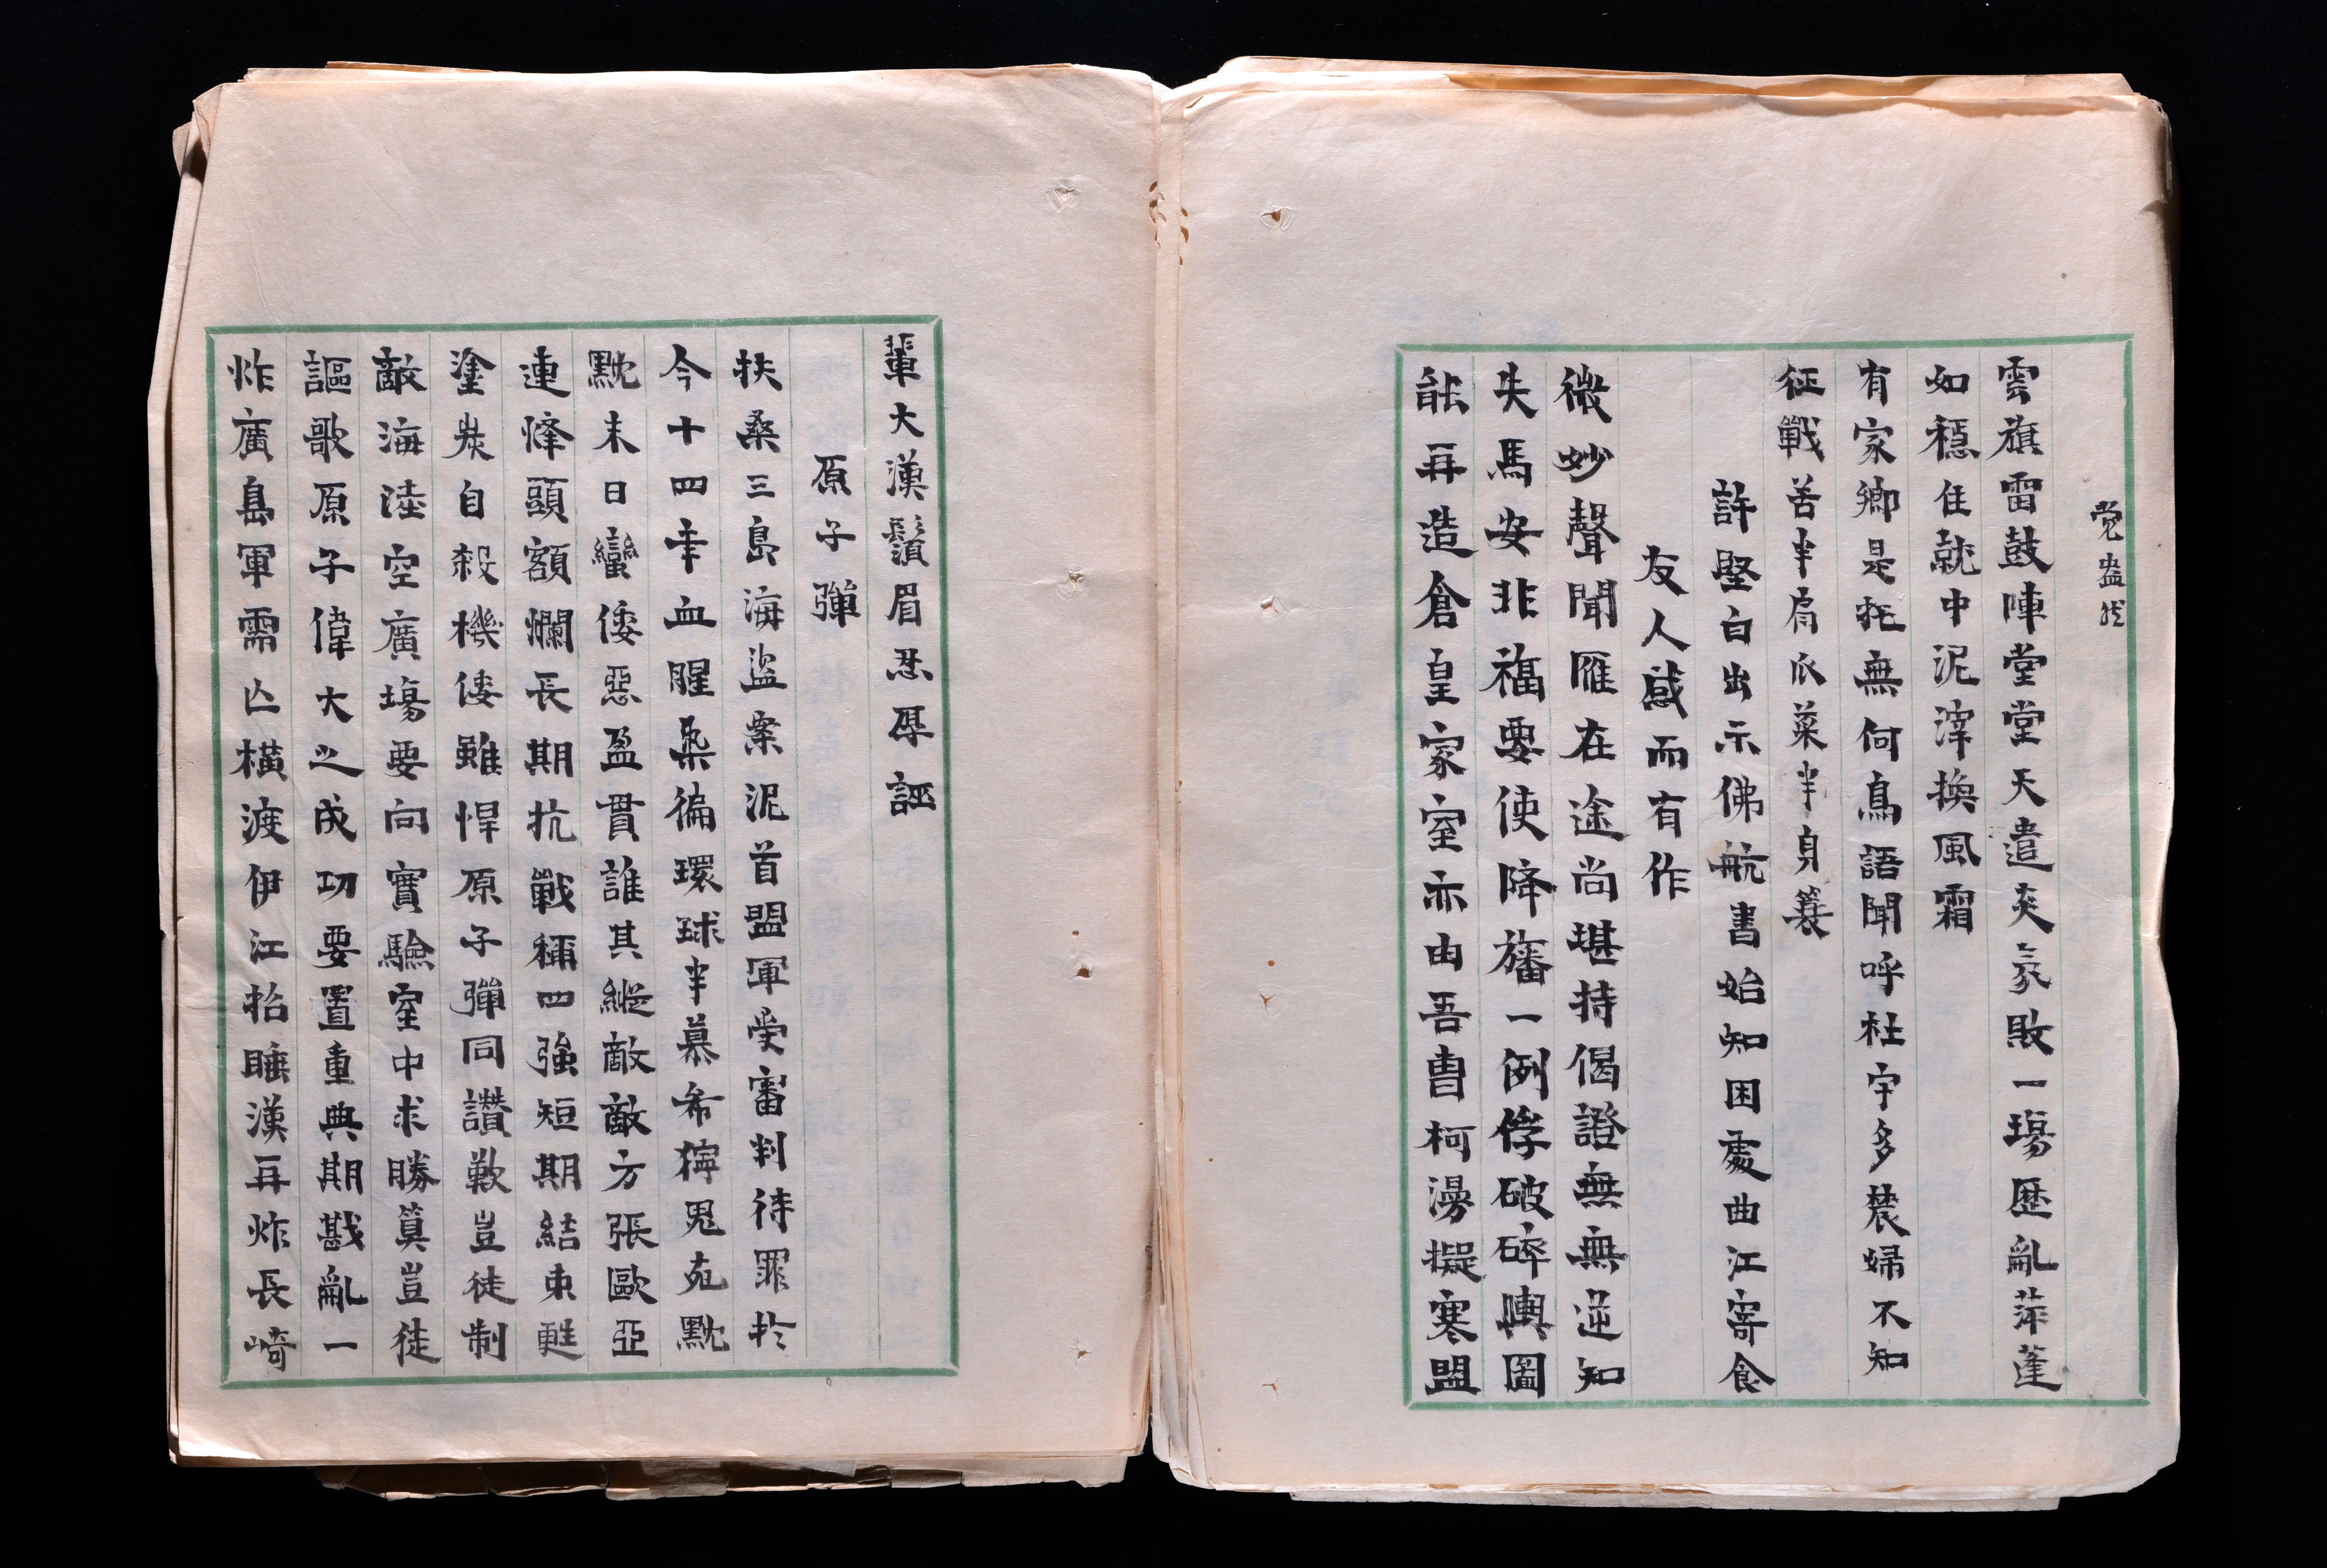 雲旗雷鼓陣堂堂天遣夾氛敗一場歷亂萍蓬
如穩住就中泥滓換風霜
有家鄉是托無何鳥語聞呼杜宇多農婦不知
征戰苦半肩瓜菜半身蓑
許堅白出示佛航書始知困處曲江寄食
友人感而有作
微妙聲聞雁在途尚堪持偈證無無逆知
失馬安非福要使降旛一例俘破碎輿圖
能再造倉皇家室亦由吾曹柯漫擬寒盟
輩大漢鬚眉忍辱誣
原子彈
扶桑三島海盜案泥首盟軍受審判待罪於
今十四年血腥染徧環球半慕希獰鬼克黩
黩末日蠻倭惡盈貫誰其縱敵敵方張歐亞
連烽頭額爛長期抗戰稱四強短期結束甦
塗炭自殺機倭雖悍原子彈同讚歎豈徒制
敵海陸空廣場要向實驗室中求勝算豈徒
謳歌原子偉大之成功要置重典期戡亂一
炸廣島軍需亡橫渡伊江抬睡漢再炸長崎